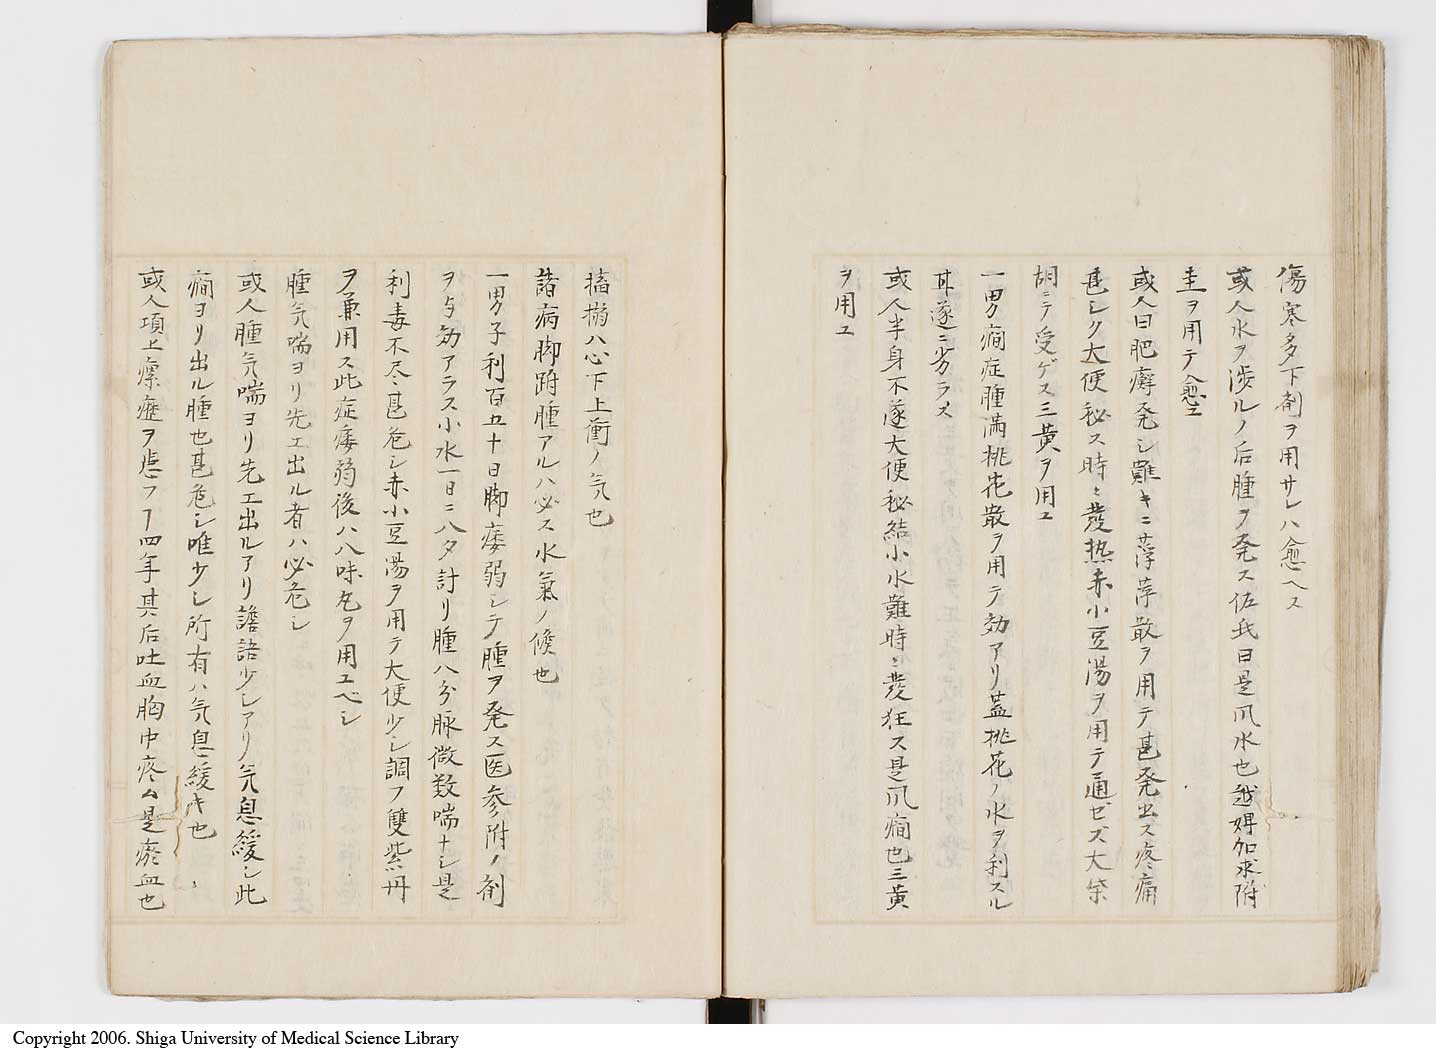 傷寒多下剤ヲ用サレハ愈ヘス
或人水ヲ渉ルノ后腫ヲ発ス佐氏曰是爪水也越婢加朮附
圭ヲ用テ愈ユ
或人曰肥癬発シ難キニ蕣蕣散ヲ用テ甚発出ス疼痛
甚シク大便秘ス時〻發熱赤小豆湯ヲ用テ通ゼズ大柴
胡ニテ受ゲス三黄ヲ用ユ
一男癇症腫満桃花散ヲ用テ効アリ蓋桃花ノ水ヲ利スル
甘遂ニ劣ラス
或人半身不遂大便秘結小水難時〻發狂ス是爪癇也三黄
ヲ用ユ
搐搦ハ心下上衝ノ気也
諸病脚跗腫アルハ必ス水氣ノ候也
一男子利百五十日脚痿弱シテ腫ヲ発ス医参附ノ剤
ヲ与効アラス小水一日ニ八夕計リ腫八分脉微数喘ナシ是
利毒不尽甚危シ赤小豆湯ヲ用テ大便少シ調フ雙紫丹
ヲ兼用ス此症痿弱後ハ八味丸ヲ用ユベシ
腫気喘ヨリ先エ出ル者ハ必危シ
或人腫気喘ヨリ先エ出ルアリ譫語少シアリ気息緩シ此
癇ヨリ出ル腫也甚危シ唯少シ所有ハ気息緩キ也
或人項上瘰癧ヲ患フヿ四年其后吐血胸中疼ム是瘀血也
Copyright 2006. Shiga University of Medical Science Library